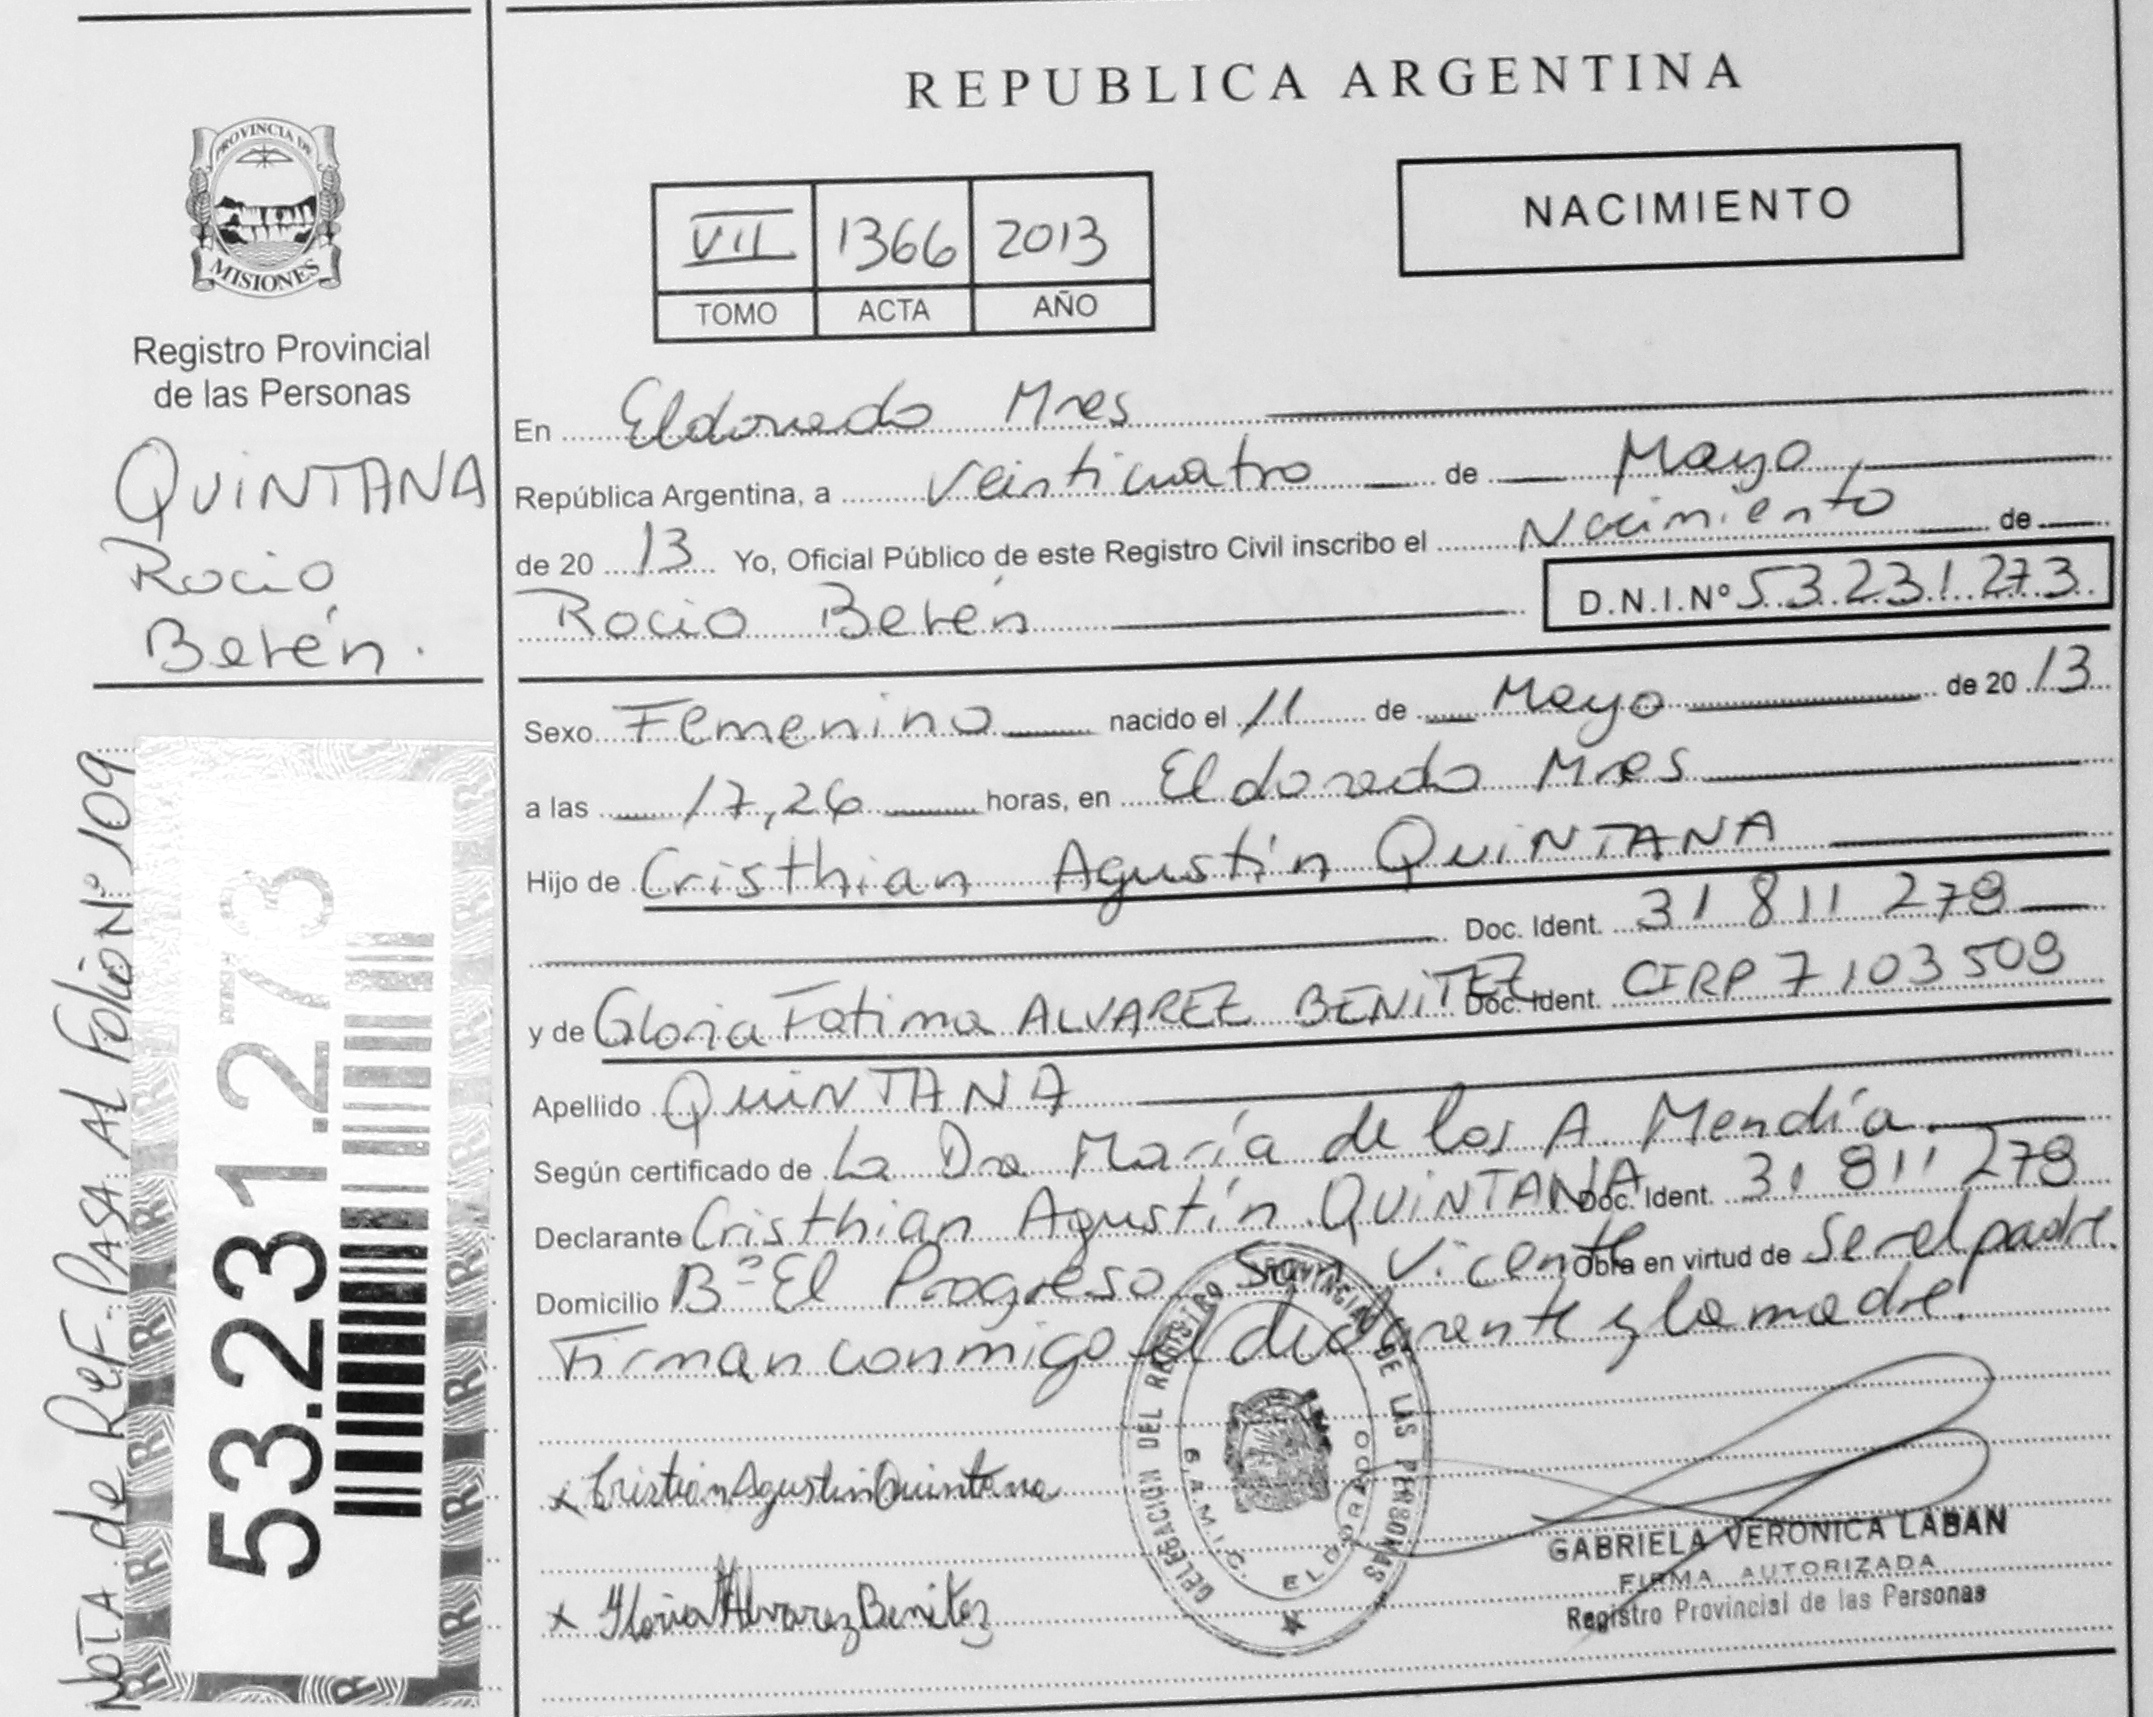 REPUBLICA ARGENTINA
PROVINCIA DE
MISIONES
Registro Provincial
de las Personas
QUINTANA
Rocio
Belén.
NOTA de Ref. PASA Al Folio Nº 109
53.231.273
NACIMIENTO
VII 1366 2013
TOMO ACTA AÑO
En Eldorado Mnes
República Argentina, a veinticuatro de Mayo
de 20 13 Yo, Oficial Público de este Registro Civil inscribo el Nacimiento de
Rocio Belén D.N.I.Nº 53.231.273
Sexo Femenino nacido el 11 de Mayo de 20 13
a las 17,26 horas, en Eldorado Mnes
Hijo de Cristhian Agustín QUINTANA
Doc. Ident. 31 811 279
y de Gloria Fatima ALVAREZ BENITEZ Doc. Ident. CIRP 7103509
Apellido QUINTANA
Según certificado de La Dra María de los A. Mendía
Declarante Cristhian Agustín QUINTANA Doc. Ident. 31 811 279
Domicilio Bº El Progreso San Vicente Obra en virtud de Ser el padre.
Firman conmigo el declarante y la madre.
x Cristian Agustin Quintana
x Gloria Alvarez Benitez
DELEGACION DEL REGISTRO PROVINCIAL DE LAS PERSONAS
S.A.M.I.C. ELDORADO
GABRIELA VERONICA LABAN
FIRMA AUTORIZADA
Registro Provincial de las Personas